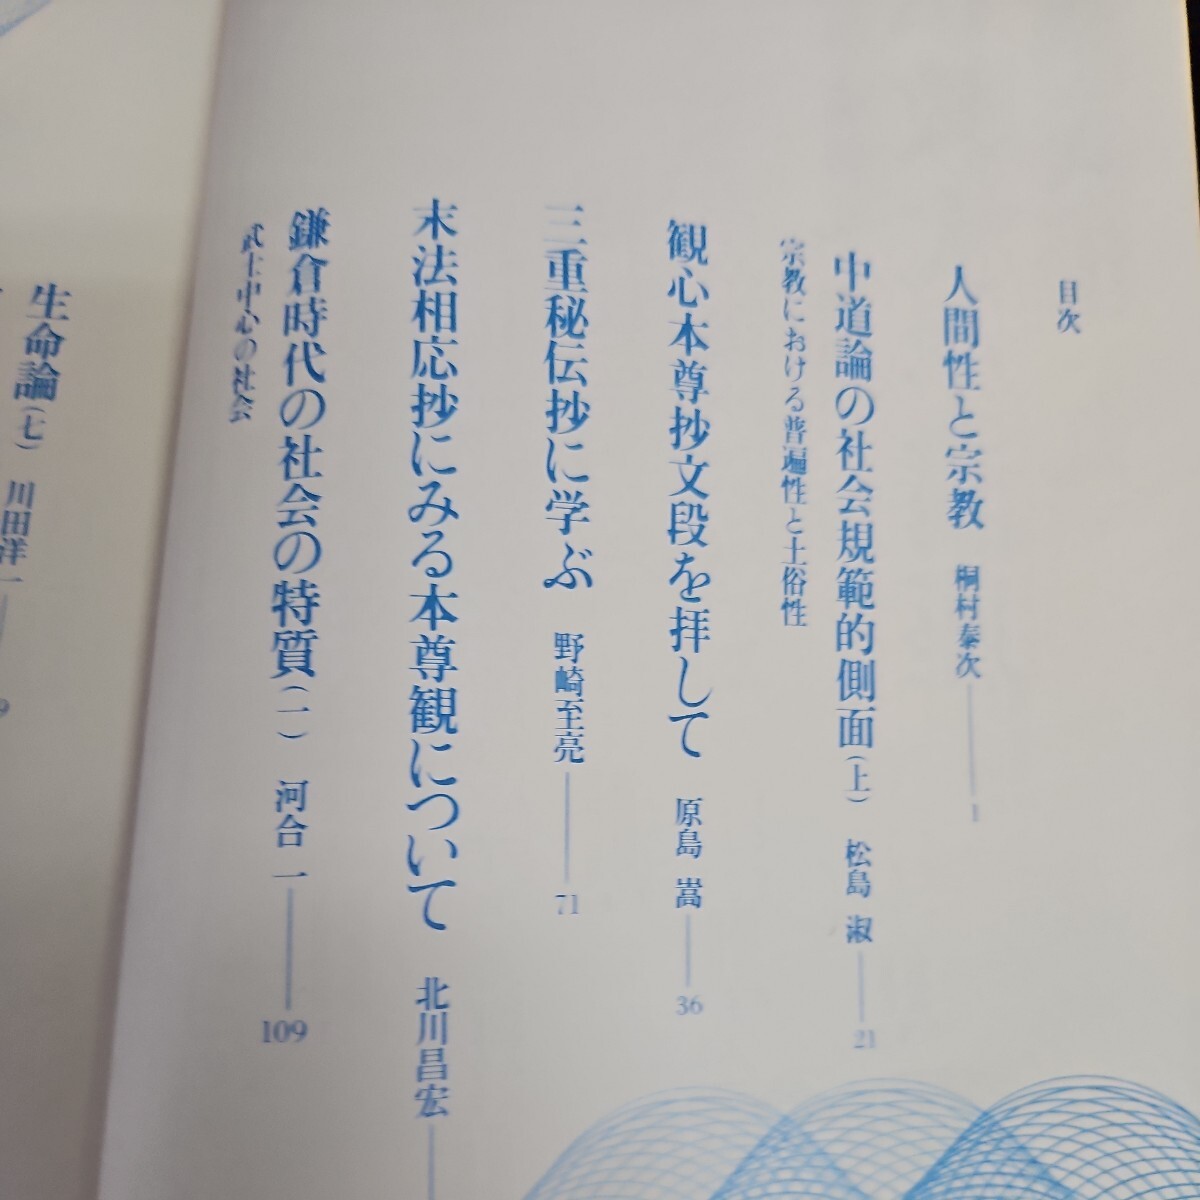 目次
人間性と宗教 桐村泰次 1
中道論の社会規範的側面(上) 松島 淑 21
宗教における普遍性と土俗性
観心本尊抄文段を拝して 原島 嵩 36
三重秘伝抄に学ぶ 野崎至亮 71
末法相応抄にみる本尊観について 北川昌宏
鎌倉時代の社会の特質(一) 河合 一 109
武士中心の社会
生命論(七) 川田洋一